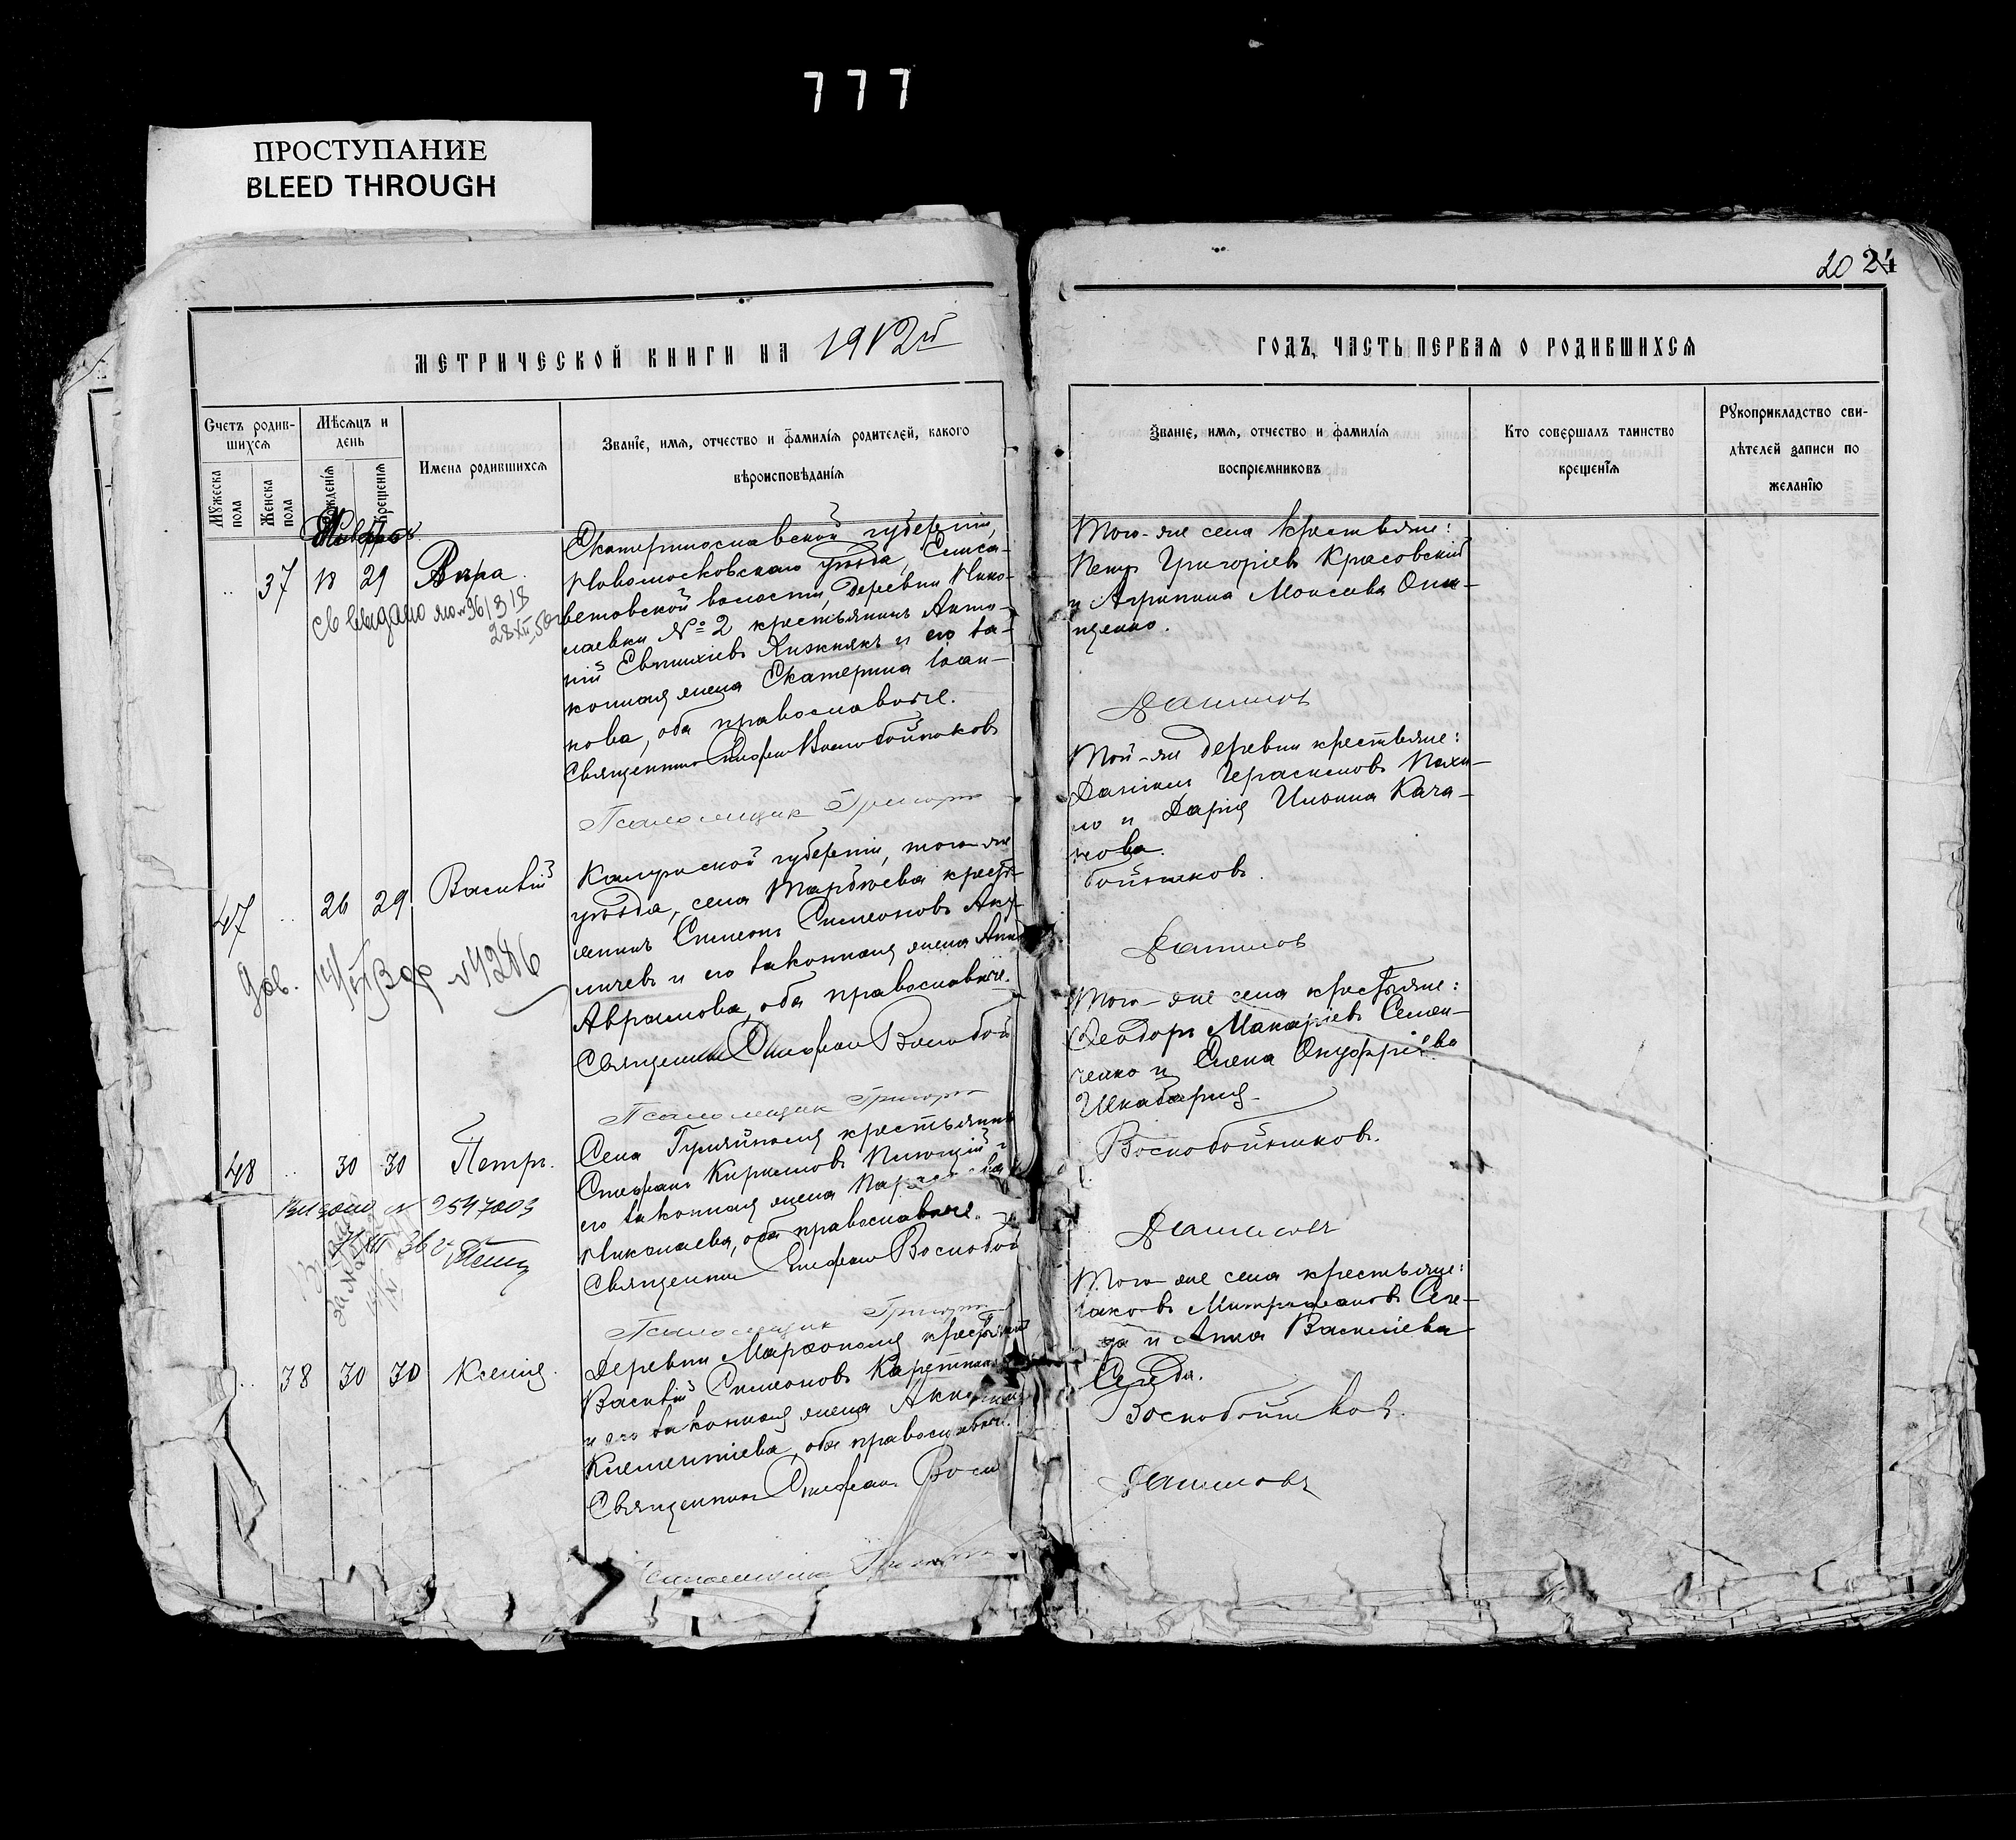 777
ПРОСТУПАНИЕ
BLEED THROUGH
20 24
МЕТРИЧЕСКОЙ КНИГИ НА 1912й
ГОДЪ, ЧАСТЬ ПЕРВАЯ О РОДИВШИХСЯ
Счетъ родив-
шихся
Мѣсяцъ и
день
Мужеска
пола
Женска
пола
Рожденія
Крещенія
Имена родившихся
Званіе, имя, отчество и фамилія родителей, какого
вѣроисповѣданія
Званіе, имя, отчество и фамилія
воспріемниковъ
Кто совершалъ таинство
крещенія
Рукоприкладство сви-
дѣтелей записи по
желанію
37 18 29 Вѣра.
Екатеринославской губерніи,
Новомосковскаго уѣзда, Елиса-
ветовской волости, деревни Нико-
лаевки № 2 крестьянинъ Анто-
ній Евтихіевъ Кижнякъ и его за-
конная жена Екатерина Іоан-
нова, оба православные.
Священникъ Стефанъ Воскобойниковъ
Псаломщик Григорій
Того-же села крестьяне:
Петръ Григоріевъ Красовскій
и Агрипина Моисеева Они-
щенко.
Даниловъ
47 26 29 Василій
№ 4286
Калужской губерніи, того-же
уѣзда, села крест-
янинъ Симеонъ Симеоновъ Аку-
личевъ и его законная жена Анна
Аврамова, оба православные.
Священникъ Стефанъ Воскобой
Псаломщик Григорій
Той-же деревни крестьяне:
Даніилъ Герасимовъ Пахи-
ло и Дарія Ильина Кача-
нова.
бойниковъ.
Даниловъ
48 30 30 Петръ.
Выдано № 2597003
Села Гуляйполя крестьянинъ
Стефанъ Кирилловъ и
его законная жена
Николаева, оба православные.
Священникъ Стефанъ Воскобой
Псаломщик Григорій
Того-же села крестьяне:
Ѳеодоръ Макаріевъ Семен-
ченко и Елена Онуфріева
Шкабарня.
Воскобойниковъ.
Даниловъ
38 30 30 Ксенія.
Деревни Марѳополя крестьянинъ
Василій Симеоновъ
и его законная жена
Климентіева, оба православные.
Священникъ Стефанъ Воск
Псаломщик Григорій
Того-же села крестьяне:
Іаковъ Митрофановъ Сере-
да и Анна Василіева
Середа.
Воскобойниковъ.
Даниловъ